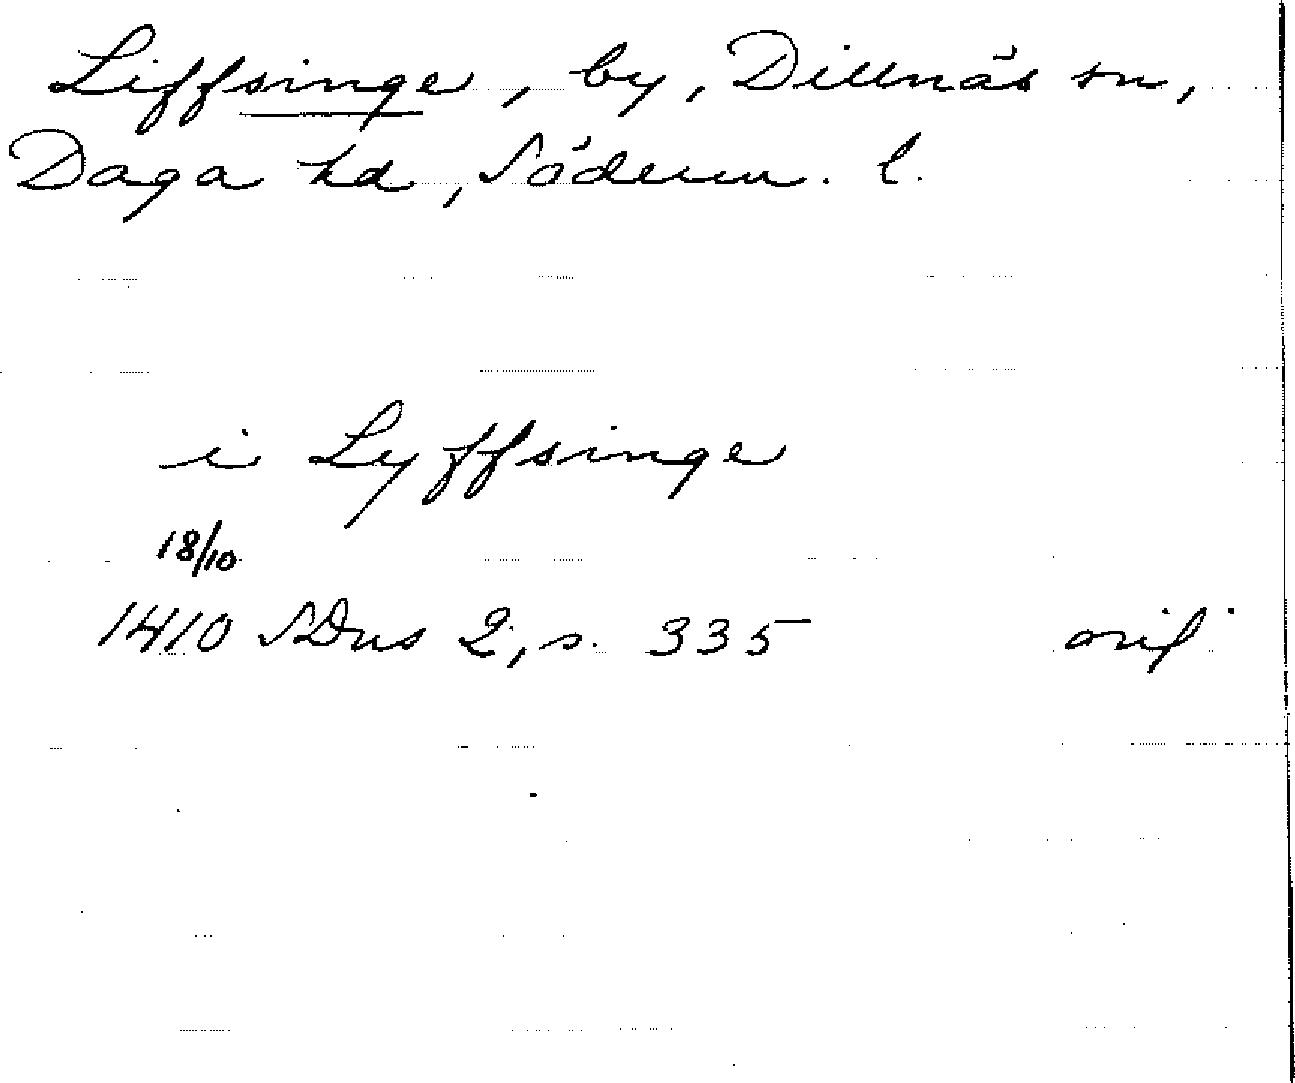 Liffsinge, by, Dillnäs sn,
Daga hd, Söderm. l.
i Lyffsinge
18/10
1410 SDns 2, s. 335 orig.